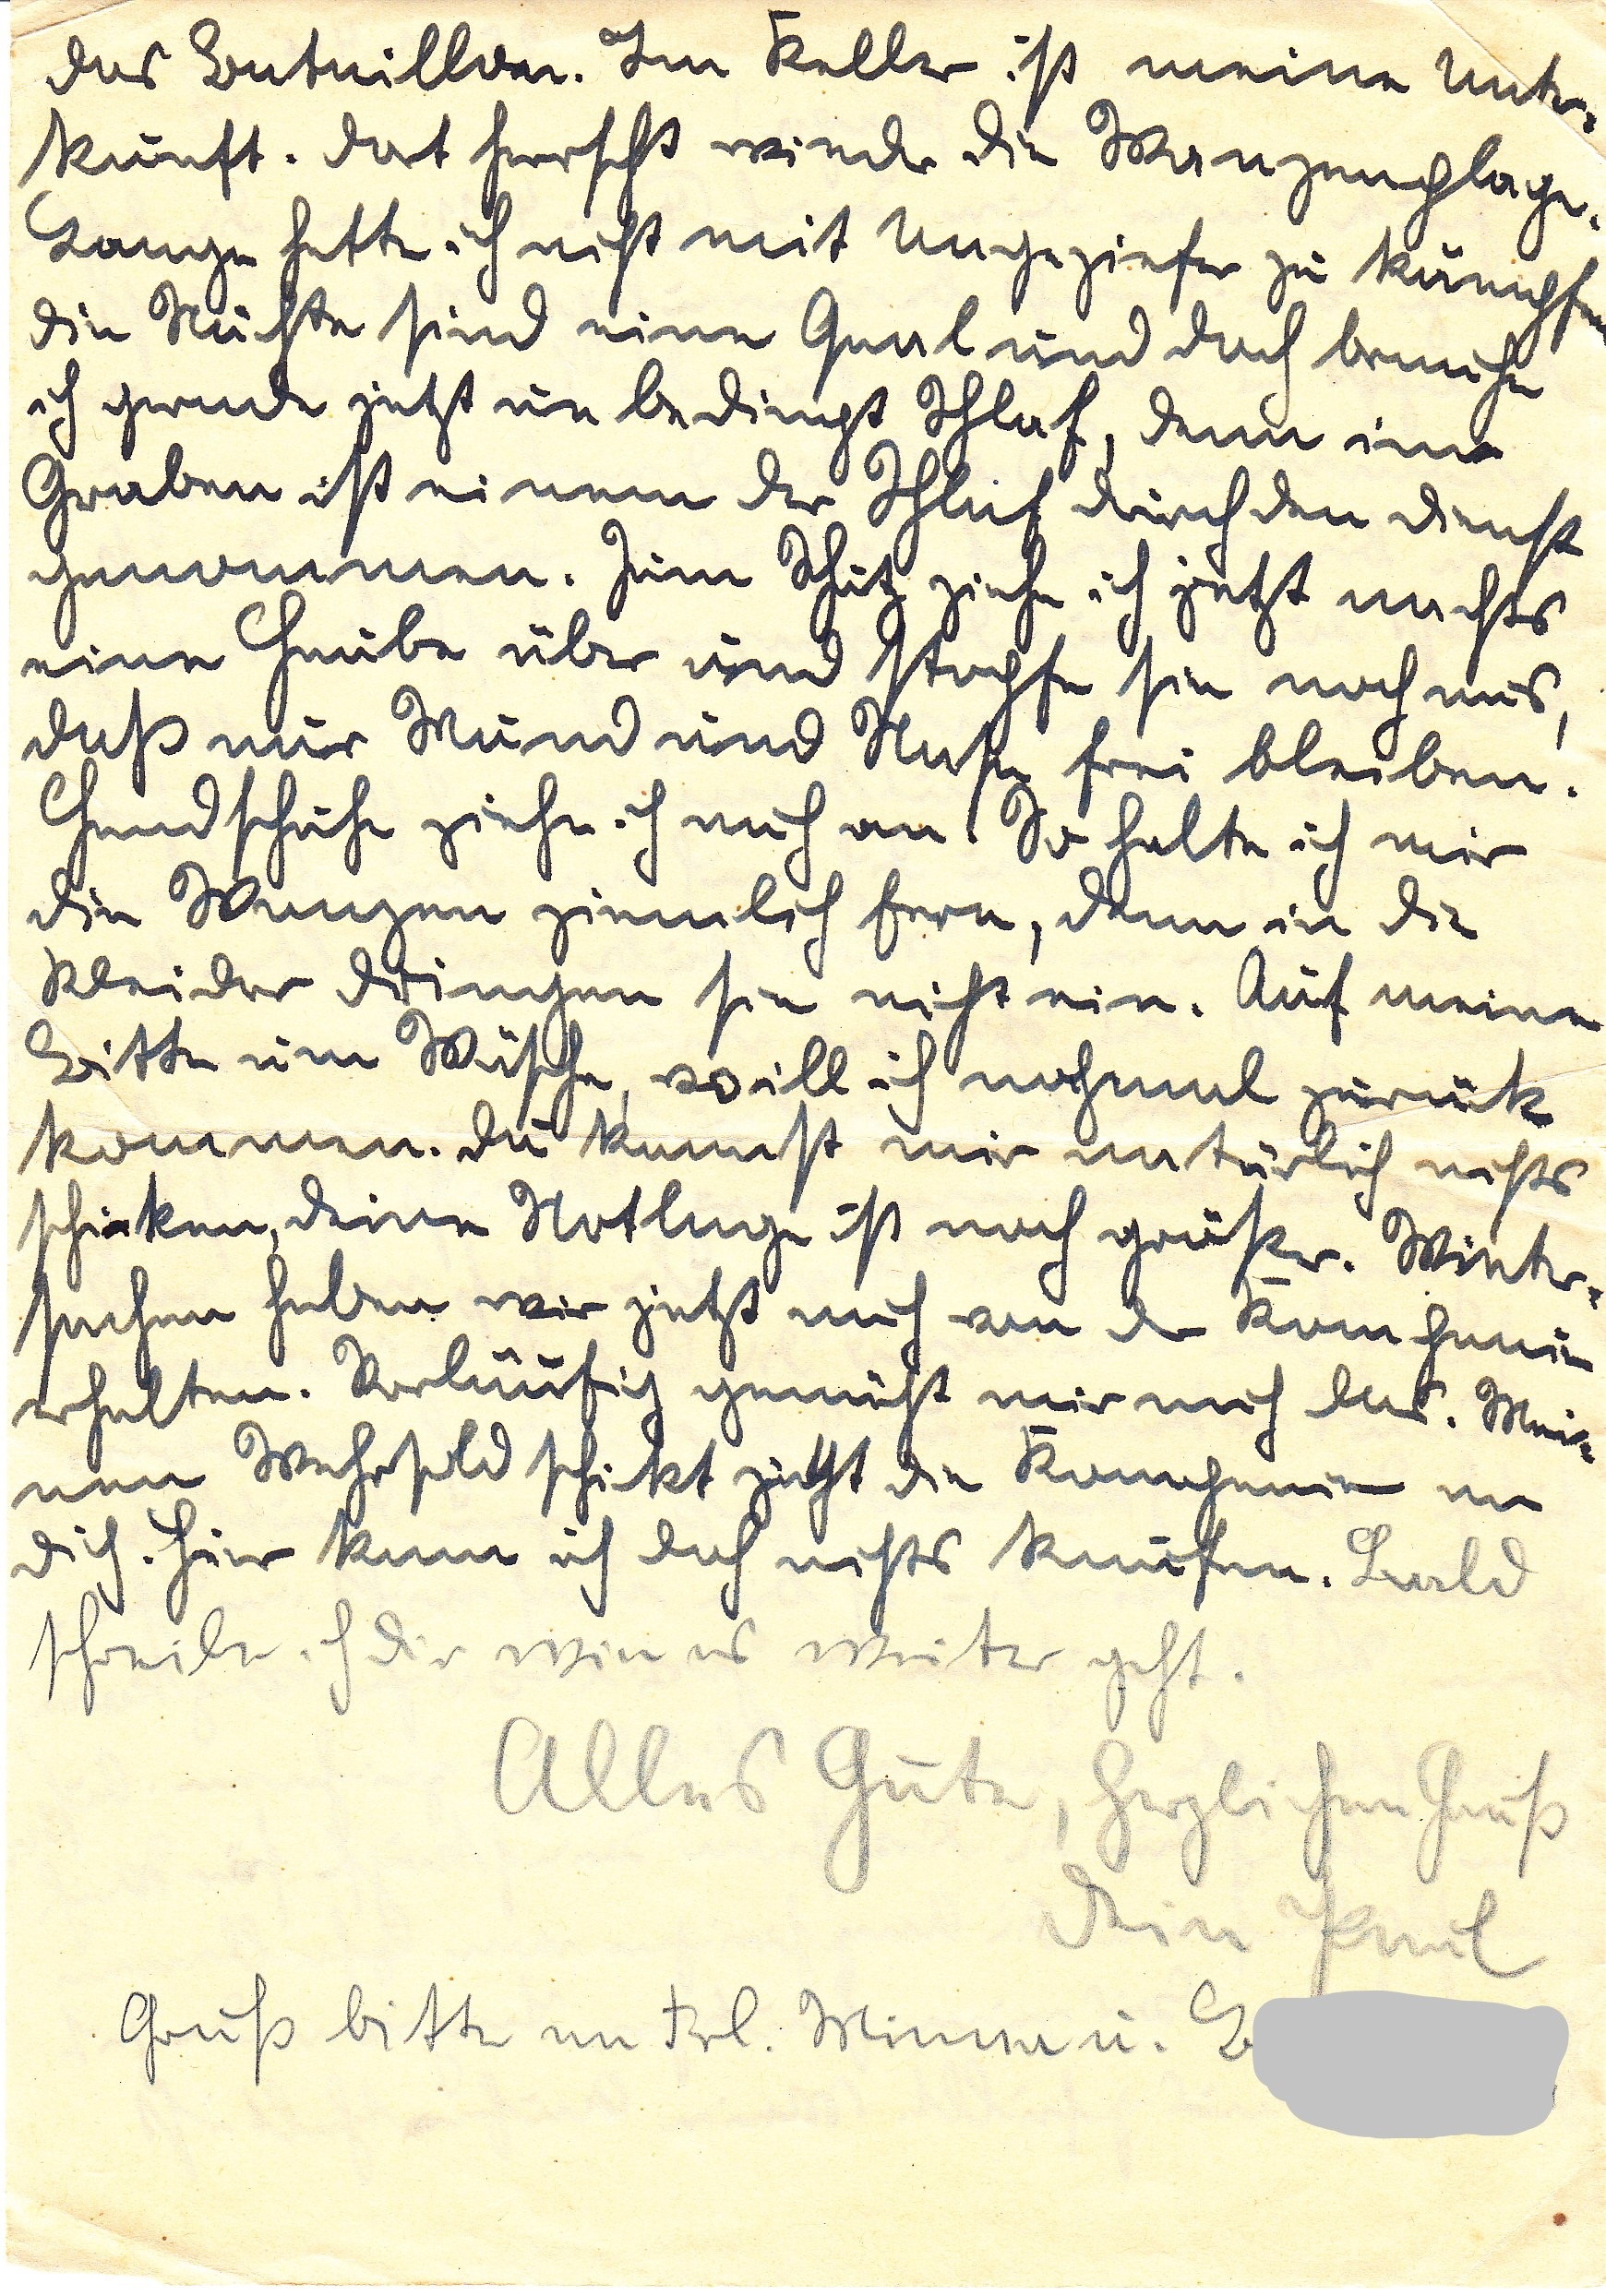 das Bataillon. Im Keller ist meine Unter-
kunft. Dort herrscht wieder die Wanzenplage.
Lange hatte ich nicht mit Ungeziefer zu kämpfen
die Nächte sind eine Qual und doch brauche
ich gerade jetzt unbedingt Schlaf, denn im
Graben ist einem der Schlaf durch den Dienst
genommen. Zum Schutz ziehe ich jetzt nachts
eine Haube über und stopfe sie noch aus,
daß nur Mund und Nase frei bleiben.
Handschuhe ziehe ich auch an. So halte ich mir
die Wanzen ziemlich fern, denn in die
Kleider dringen sie nicht ein. Auf meine
Bitte um Wäsche, will ich nochmal zurück
kommen. Du kannst mir natürlich nichts
schicken, deine Notlage ist noch größer. Winter-
sachen haben wir jetzt auch von der Kompanie
erhalten. Vorläufig genügt mir auch das. Mei-
nen Wehrsold schickt jetzt die Kompanie an
dich. Hier kann ich doch nichts kaufen. Bald
schreibe ich dir wie es weiter geht.
Alles Gute, herzlichen Gruß
Dein Paul
Gruß bitte an Frl. Minna u. B